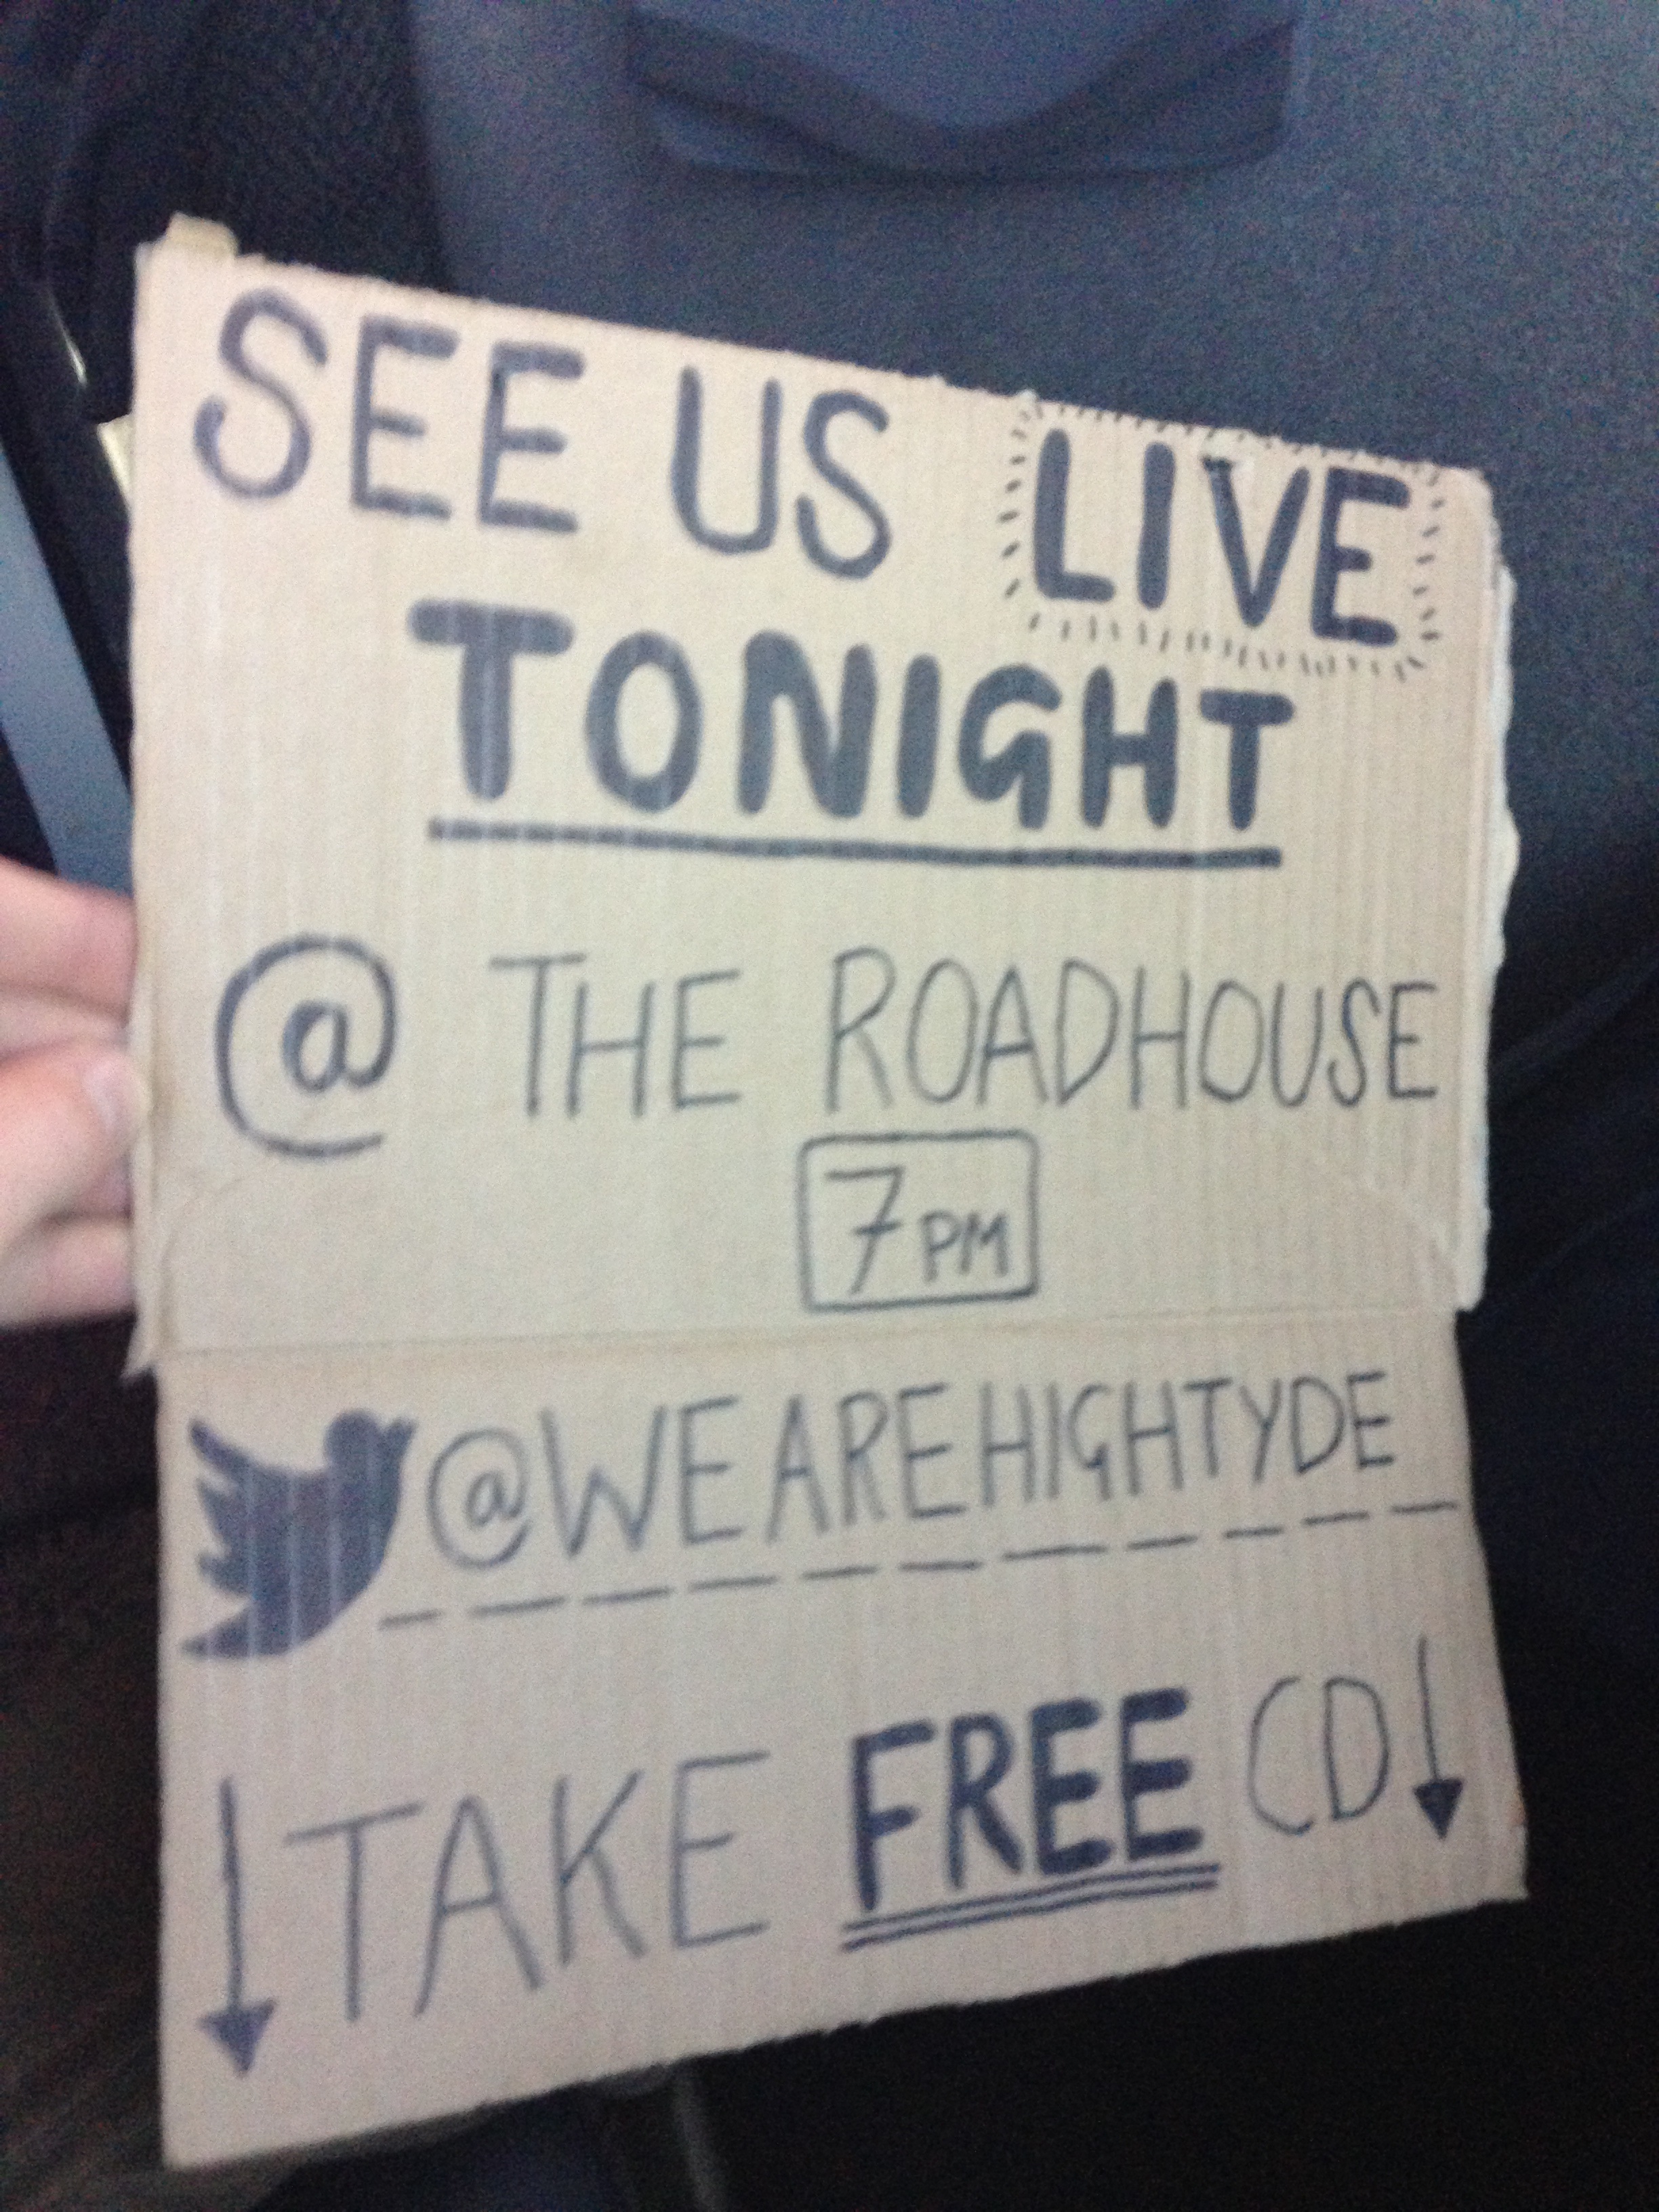 SEE US LIVE
TONIGHT
@ THE ROADHOUSE
7PM
@WEAREHIGHTYDE
TAKE FREE CD